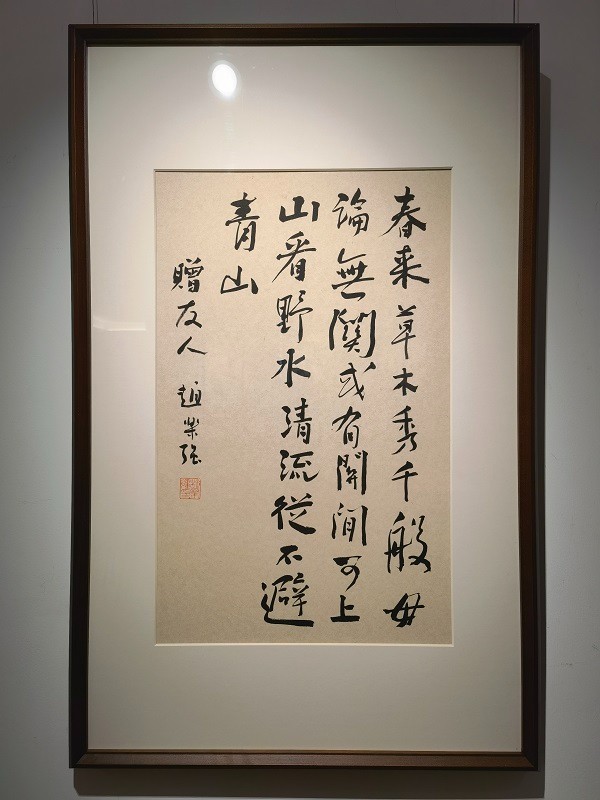 春来草木秀千般毋
論無關或有關閒可上
山看野水清流從不避
青山
贈友人 趙榮強